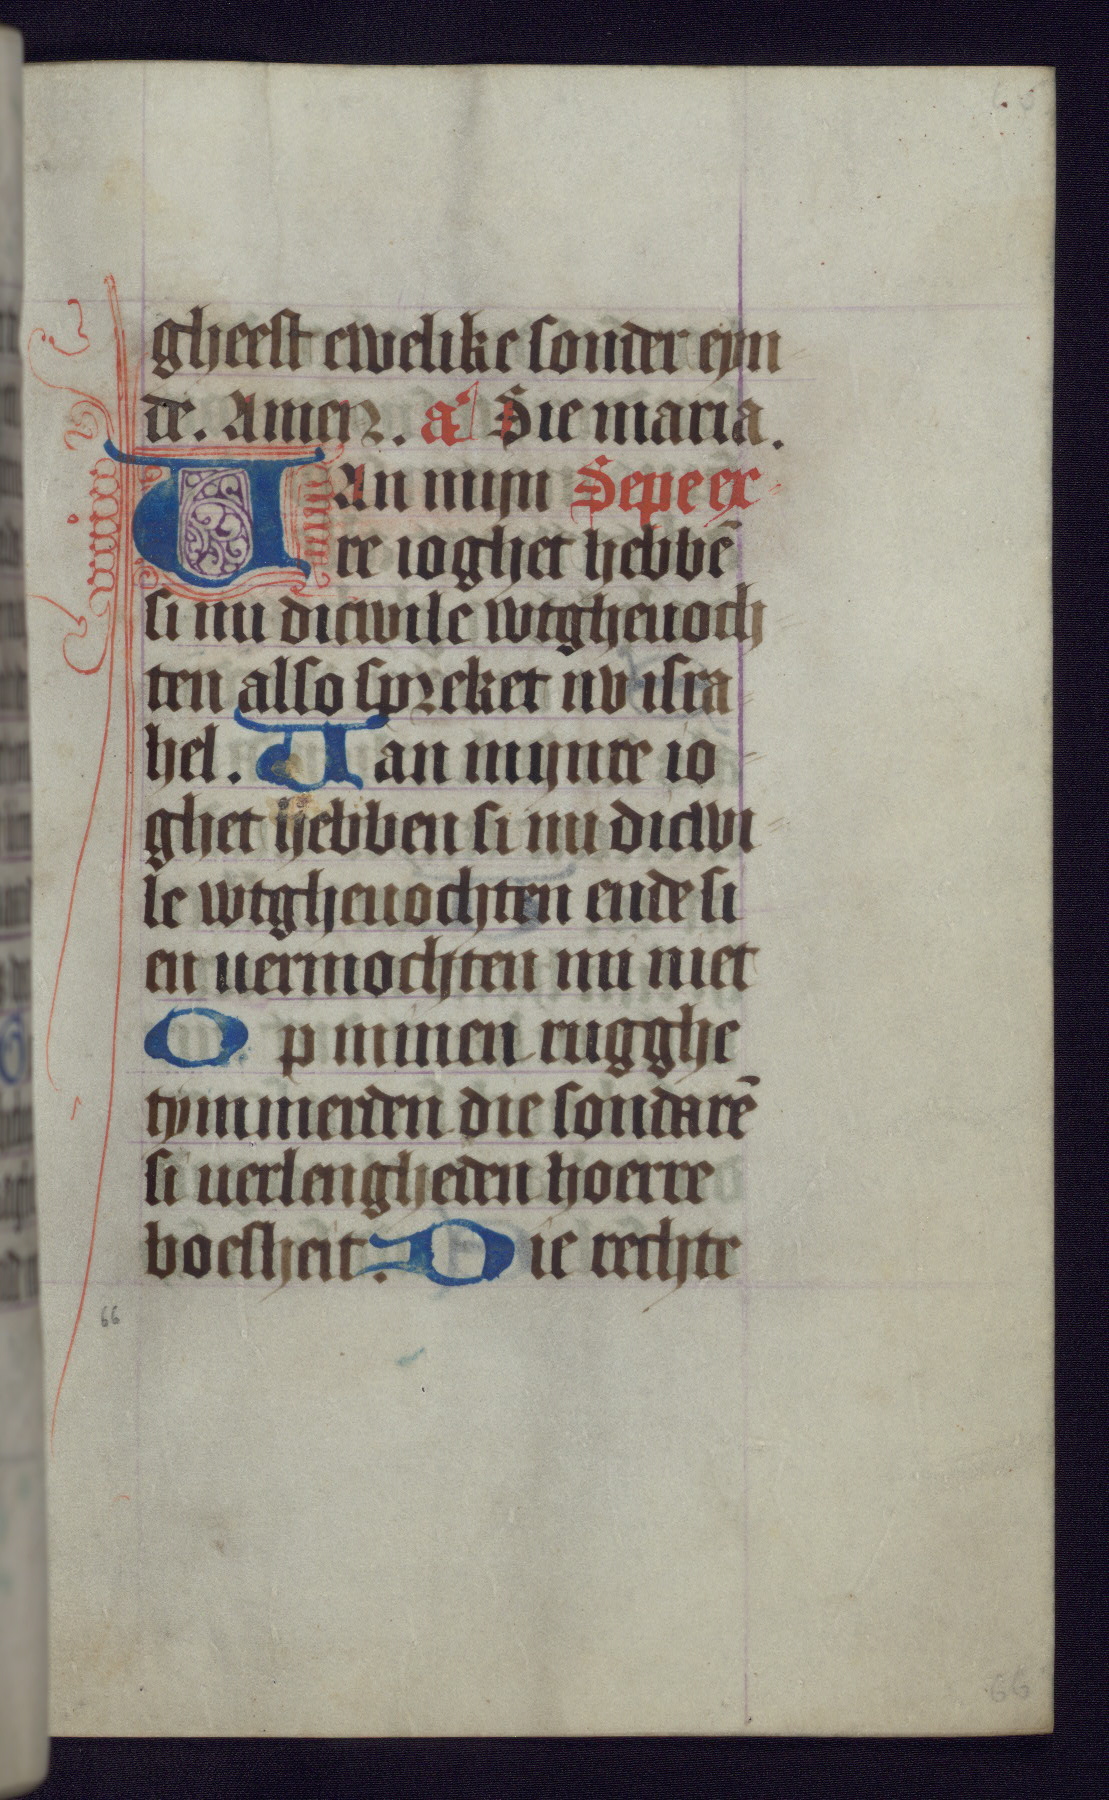 65
gheest ewelike sonder eyn
de. Amen. a᷒ Sie maria.
Uan mijn Sepe ex
re ioghet hebbē
si nu dicwile wtgheuoch
ten also spreket nv isra
hel. Uan mijnre io
ghet hebben si nu dicwi
le wtgheuochten ende si
en uermochten nu niet
Op minen rugghe
tymmerden die sondarē
si uerlengheden hoerre
boesheit. Die rechte
66
66